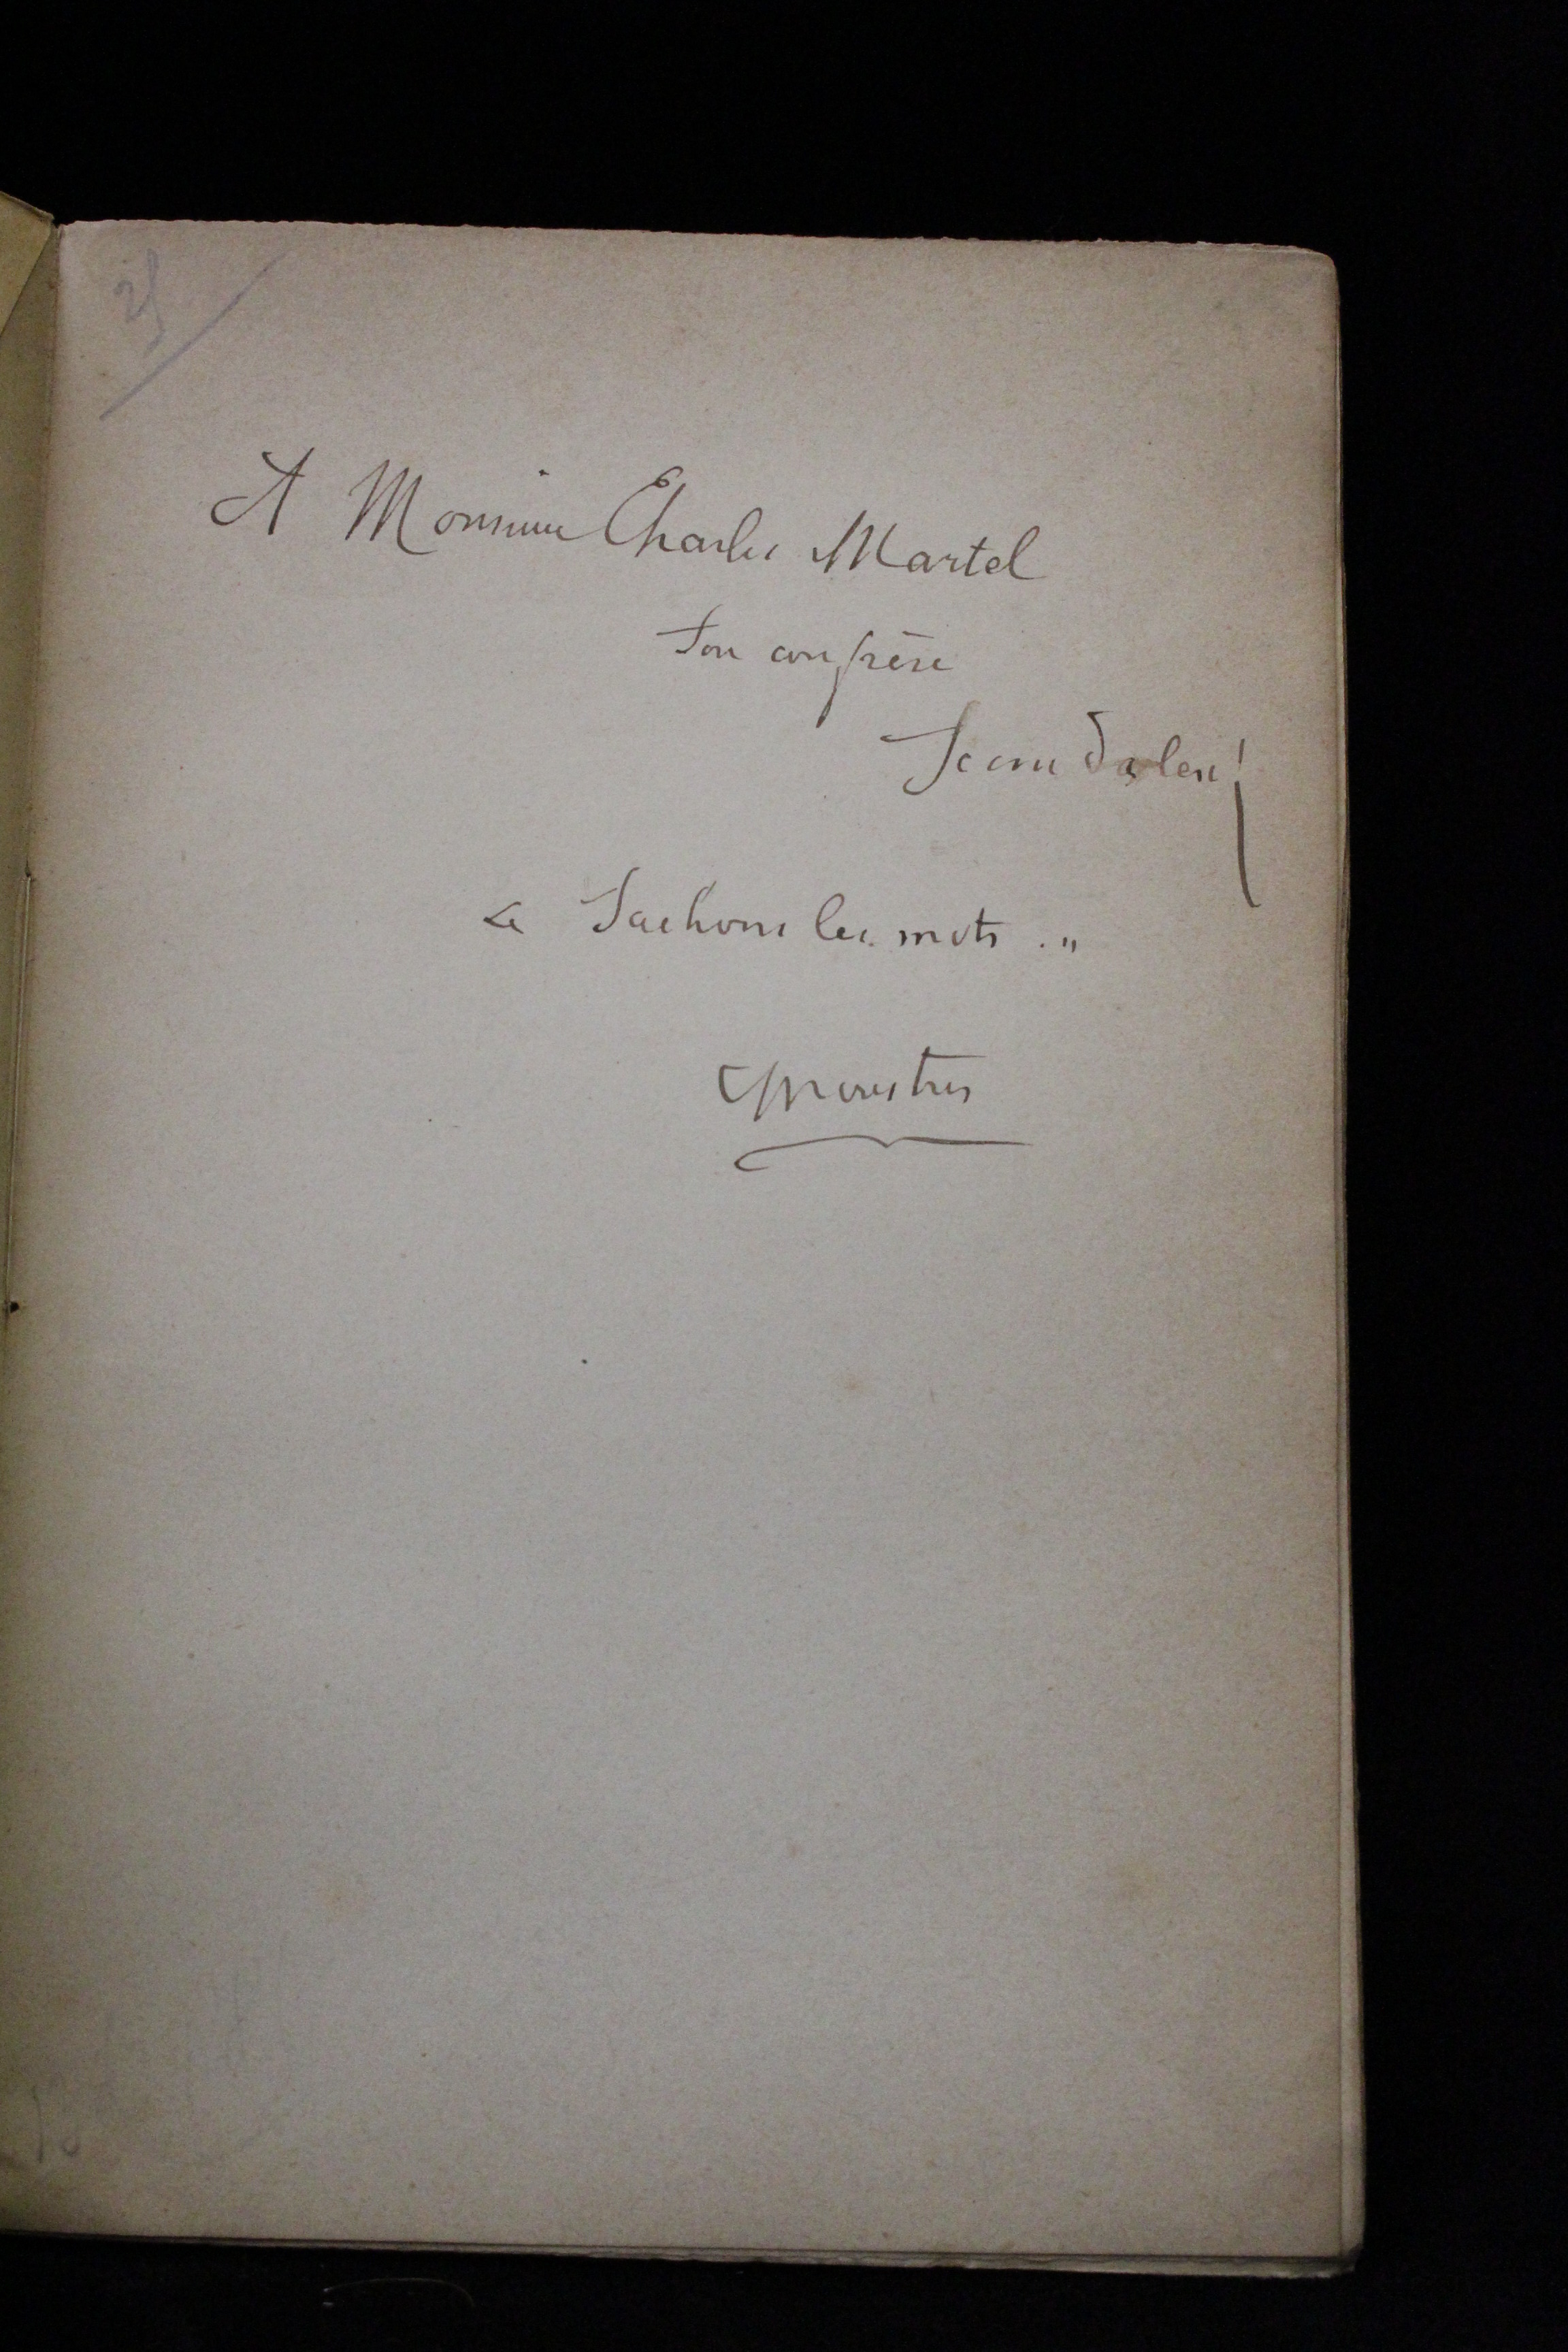 A Monsieur Charles Martel
Son confrère
Jean Dalen!
« Sachons les mots . »